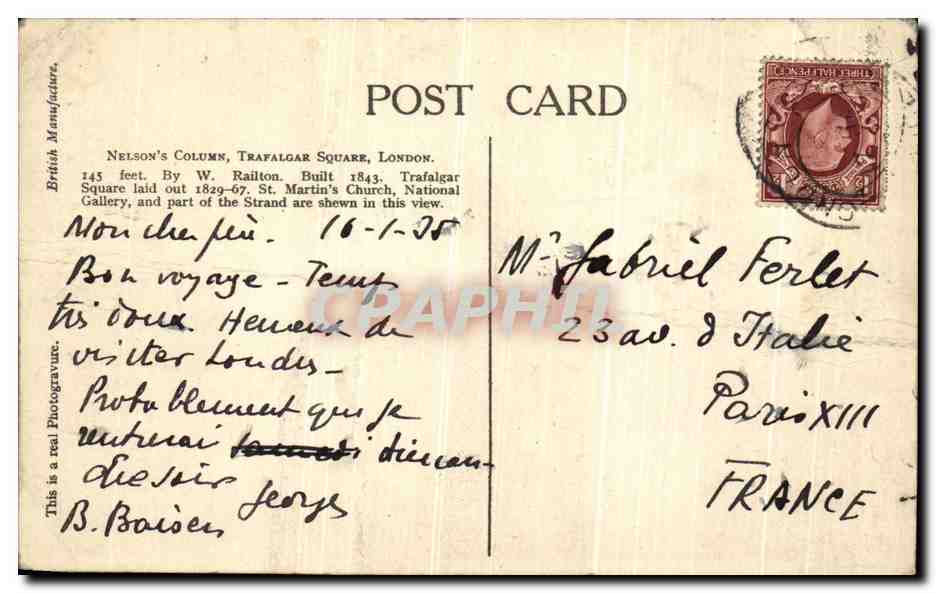 POST CARD
British Manufacture.
This is a real Photogravure.
NELSON'S COLUMN, TRAFALGAR SQUARE, LONDON.
145 feet. By W. Railton. Built 1843. Trafalgar
Square laid out 1829-67. St. Martin's Church, National
Gallery, and part of the Strand are shewn in this view.
Mon cher père. 16-1-38
Bon voyage - Temps
très doux. Heureux de
visiter Londres -
Probablement que je
rentrerai samedi diman-
che soir
Georges
B. Baisers
THREE HALFPENCE
Mr Gabriel Ferlet
23 av. d'Italie
Paris XIII
FRANCE
CPAPHIL